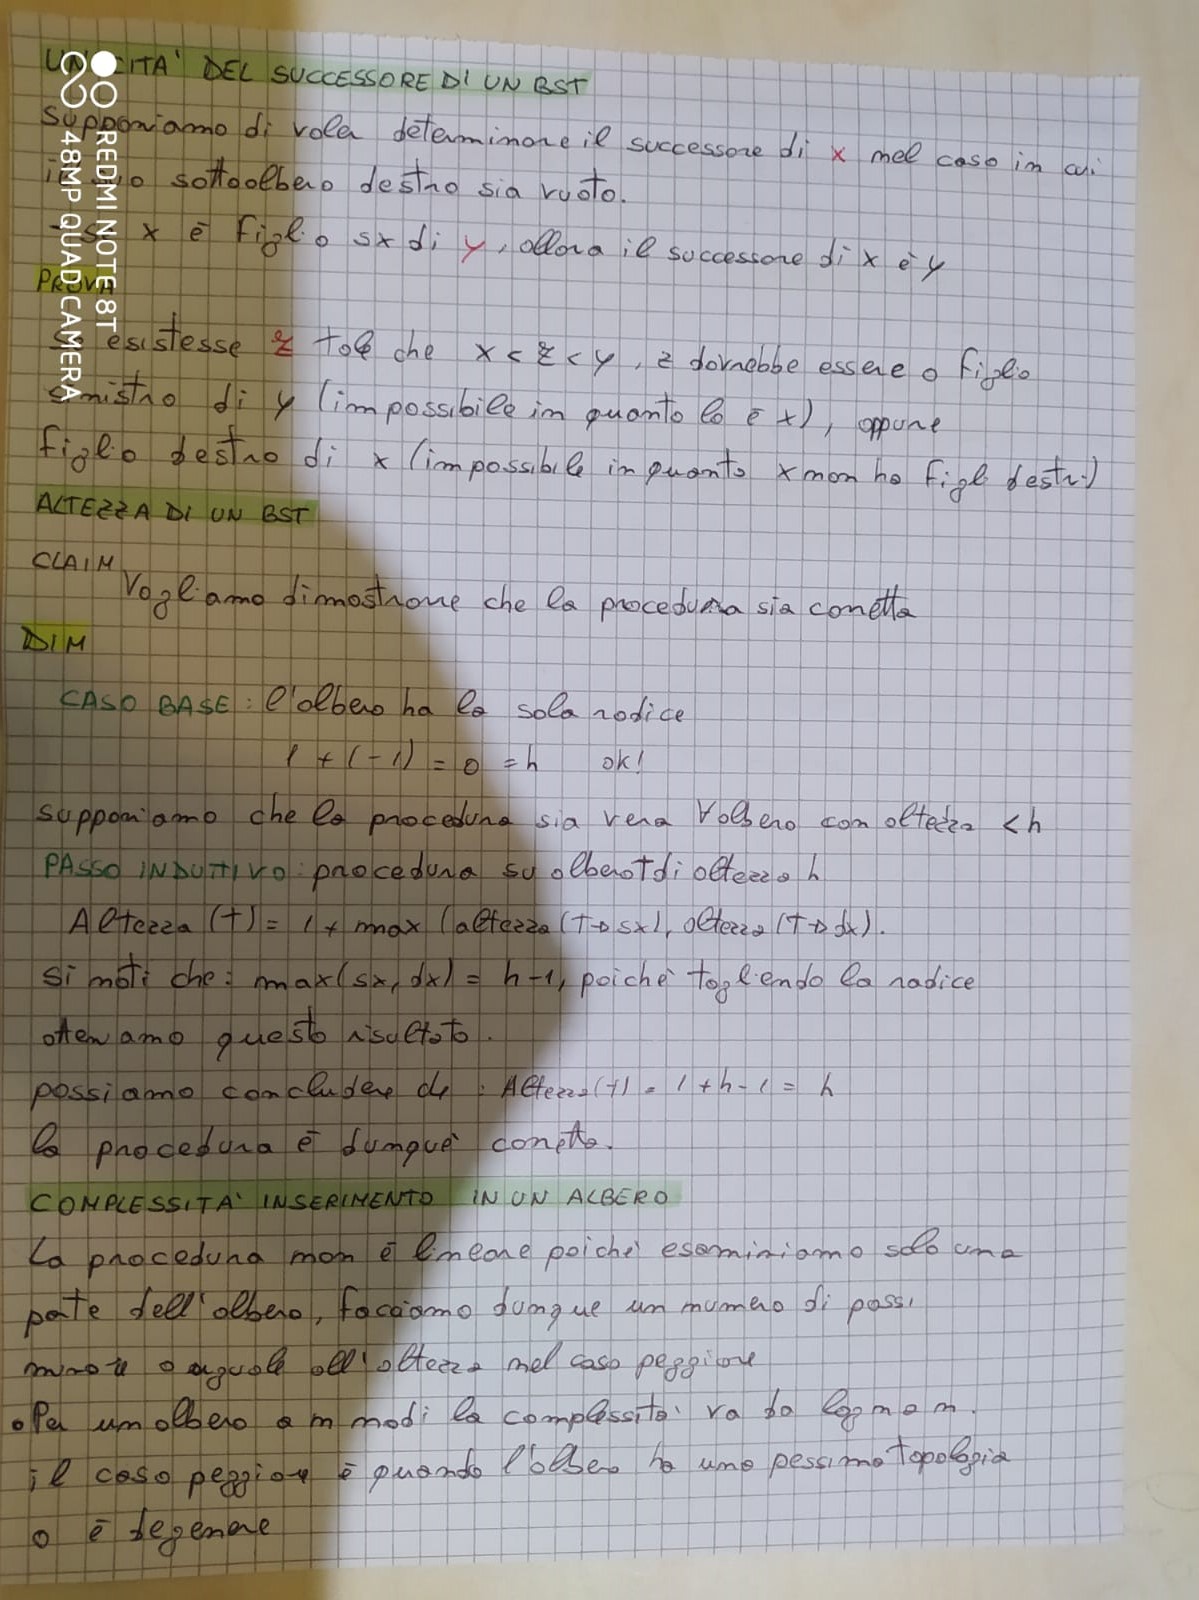 UNICITA' DEL SUCCESSORE DI UN BST
Supponiamo di voler determinare il successore di x nel caso in cui
il suo sottoalbero destro sia vuoto.
-Se x è figlio sx di y, allora il successore di x è y
PROVA
Se esistesse z tale che x < z < y, z dovrebbe essere o figlio
sinistro di y (impossibile in quanto lo è x), oppure
figlio destro di x (impossibile in quanto x non ha figli destri)
ALTEZZA DI UN BST
CLAIM
Vogliamo dimostrare che la procedura sia corretta
DIM
CASO BASE: l'albero ha la sola radice
1 + (-1) = 0 = h ok!
supponiamo che la procedura sia vera ∀albero con altezza < h
PASSO INDUTTIVO: procedura su albero T di altezza h
Altezza (T) = 1 + max (altezza (T→sx), altezza (T→dx).
Si noti che: max(sx, dx) = h-1, poichè togliendo la radice
otteniamo questo risultato.
possiamo concludere che: Altezza(T) = 1 + h - 1 = h
la procedura è dunque corretta.
COMPLESSITA' INSERIMENTO IN UN ALBERO
La procedura non è lineare poichè esaminiamo solo una
parte dell'albero, facciamo dunque un numero di passi
minore o uguale all'altezza nel caso peggiore
•Per un albero a n nodi la complessità va da log n a n.
il caso peggiore è quando l'albero ha una pessima topologia
o è degenere
REDMI NOTE 8T
48MP QUAD CAMERA